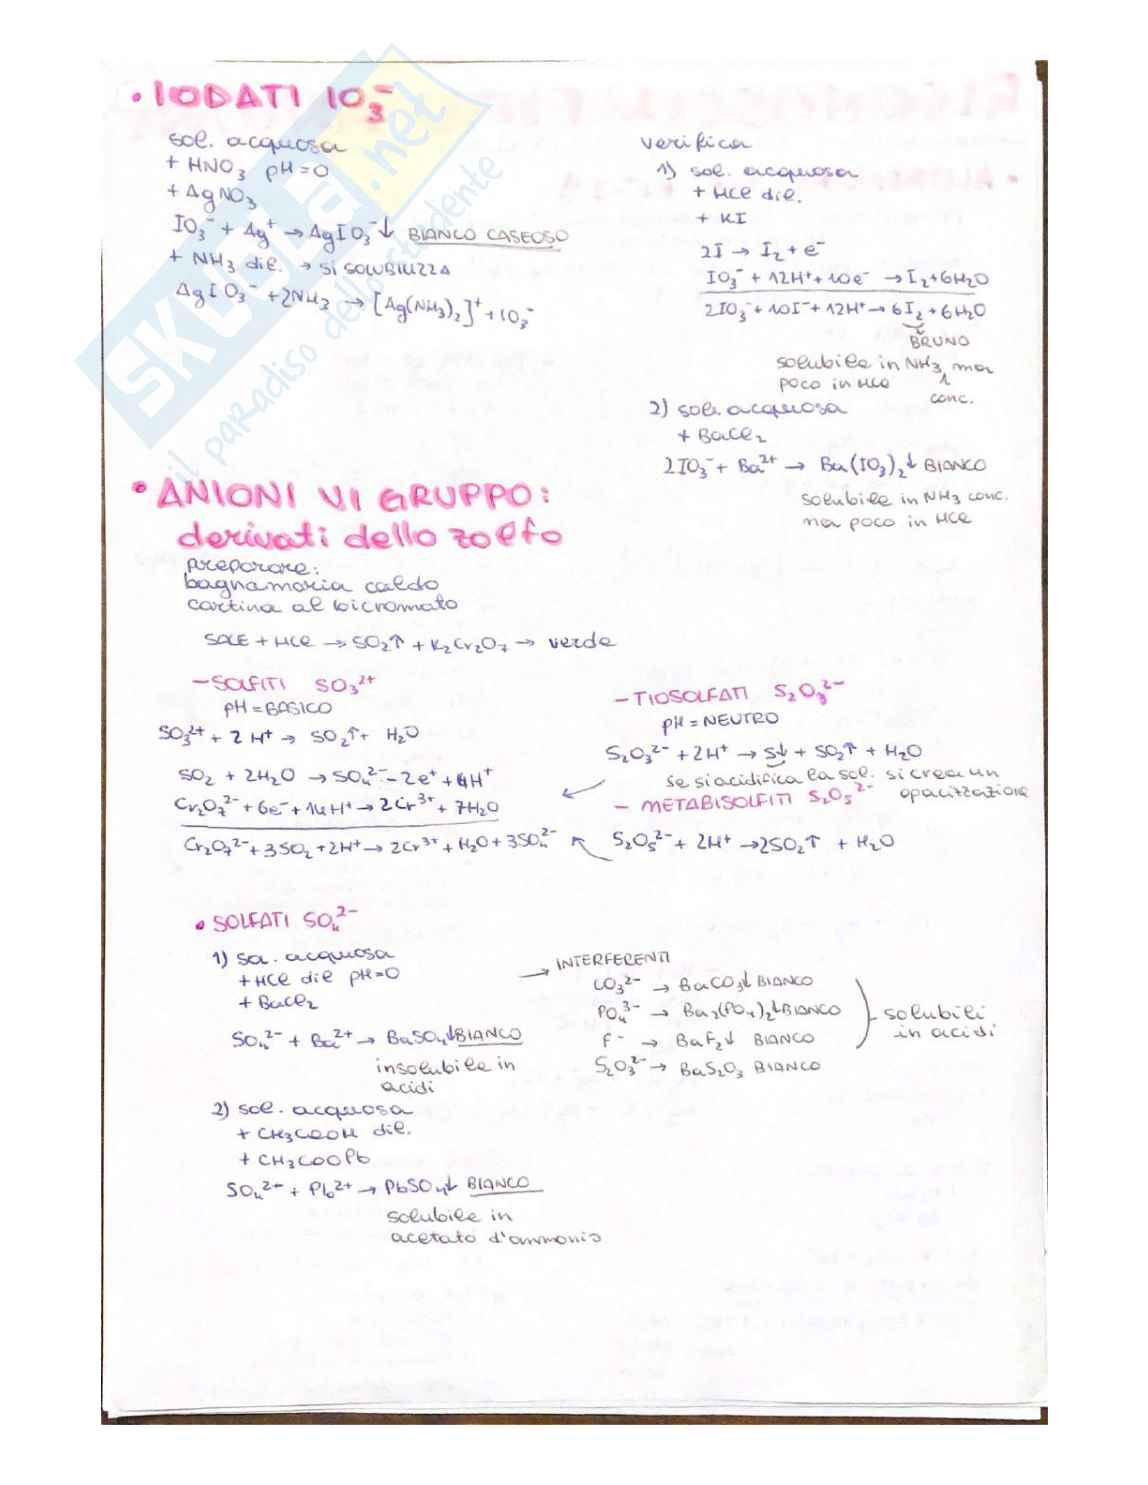 • IODATI IO₃⁻
sol. acquosa
+ HNO₃ pH=0
+ AgNO₃
IO₃⁻ + Ag⁺ → AgIO₃⁻↓ BIANCO CASEOSO
+ NH₃ dil. → SI SOLUBILIZZA
AgIO₃⁻ + 2NH₃ → [Ag(NH₃)₂]⁺ + IO₃⁻
verifica
1) sol. acquosa
+ HCl dil.
+ KI
2I → I₂ + e⁻
IO₃⁻ + 12H⁺ + 10e⁻ → I₂ + 6H₂O
2IO₃⁻ + 10I⁻ + 12H⁺ → 6I₂ + 6H₂O
BRUNO
solubile in NH₃ ma
poco in HCl
conc.
2) sol. acquosa
+ BaCl₂
2IO₃⁻ + Ba²⁺ → Ba(IO₃)₂↓ BIANCO
solubile in NH₃ conc.
ma poco in HCl
• ANIONI VI GRUPPO:
derivati dello zolfo
preparare:
bagnamaria caldo
cartina al bicromato
SALE + HCl → SO₂↑ + K₂Cr₂O₇ → verde
– SOLFITI SO₃²⁺
pH = BASICO
SO₃²⁺ + 2H⁺ → SO₂↑ + H₂O
SO₂ + 2H₂O → SO₄²⁻ - 2e⁺ + 4H⁺
Cr₂O₇²⁻ + 6e⁻ + 14H⁺ → 2Cr³⁺ + 7H₂O
Cr₂O₇²⁻ + 3SO₂ + 2H⁺ → 2Cr³⁺ + H₂O + 3SO₄²⁻
– TIOSOLFATI S₂O₃²⁻
pH = NEUTRO
S₂O₃²⁻ + 2H⁺ → S↓ + SO₂↑ + H₂O
se si acidifica la sol. si crea un
opacizzazione
– METABISOLFITI S₂O₅²⁻
S₂O₅²⁻ + 2H⁺ → 2SO₂↑ + H₂O
• SOLFATI SO₄²⁻
1) sol. acquosa
+ HCl dil pH=0
+ BaCl₂
SO₄²⁻ + Ba²⁺ → BaSO₄↓ BIANCO
insolubile in
acidi
→ INTERFERENTI
CO₃²⁻ → BaCO₃↓ BIANCO
PO₄³⁻ → Ba₃(PO₄)₂↓ BIANCO
F⁻ → BaF₂↓ BIANCO
S₂O₃²⁻ → BaS₂O₃ BIANCO
solubili
in acidi
2) sol. acquosa
+ CH₃COOH dil.
+ CH₃COOPb
SO₄²⁺ + Pb²⁺ → PbSO₄↓ BIANCO
solubile in
acetato d'ammonio
SKUOLA.net
il paradiso dello studente